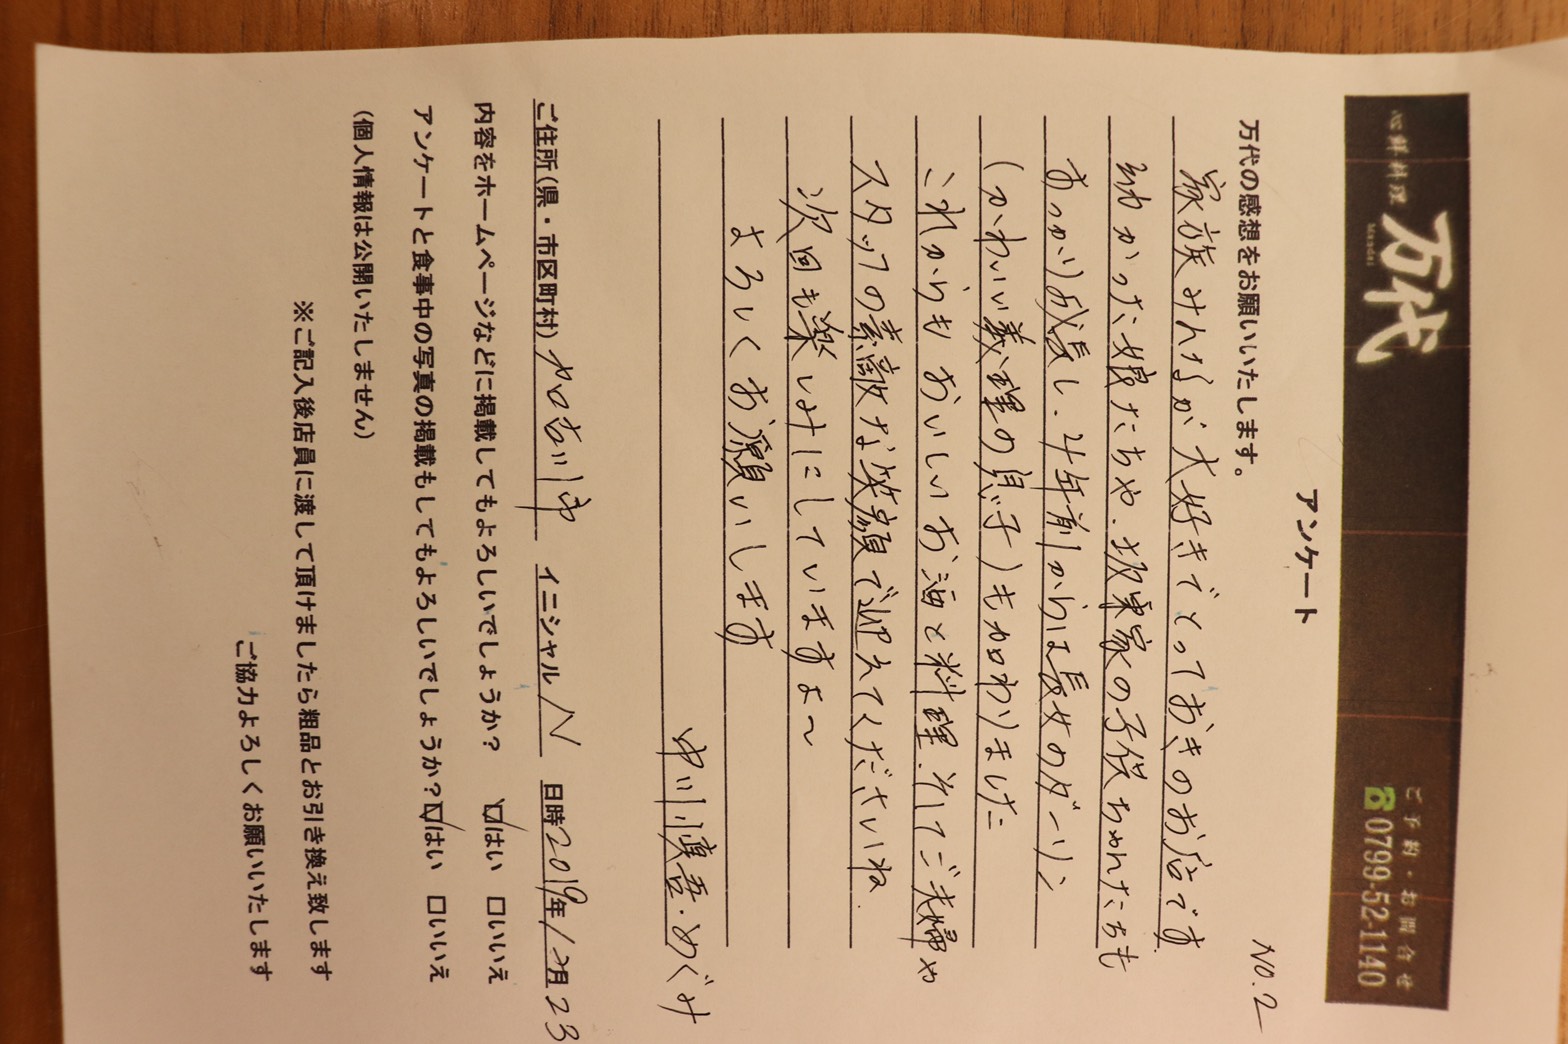 心鮮料理
万代
ご予約・お問合せ
0799-52-1140
アンケート
NO.2
万代の感想をお願いいたします。
家族みんなが大好きでとっておきのお店です
幼かった娘たちや、次家の子供ちゃんたちも
すっかり成長し、4年前からは長女のダーリン
(かわいい義理の息子)も加わりました
これからもおいしいお酒と料理、そしてご夫婦や
スタッフの素敵な笑顔で迎えてくださいね
次回も楽しみにしていますよ〜
よろしくお願いします
中川慎吾・めぐみ
ご住所(県・市区町村) イニシャル N 日時 2019年12月23
内容をホームページなどに掲載してもよろしいでしょうか? ☑はい □いいえ
アンケートと食事中の写真の掲載もしてもよろしいでしょうか?☑はい □いいえ
(個人情報は公開いたしません)
※ご記入後店員に渡して頂けましたら粗品とお引き換え致します
ご協力よろしくお願いいたします